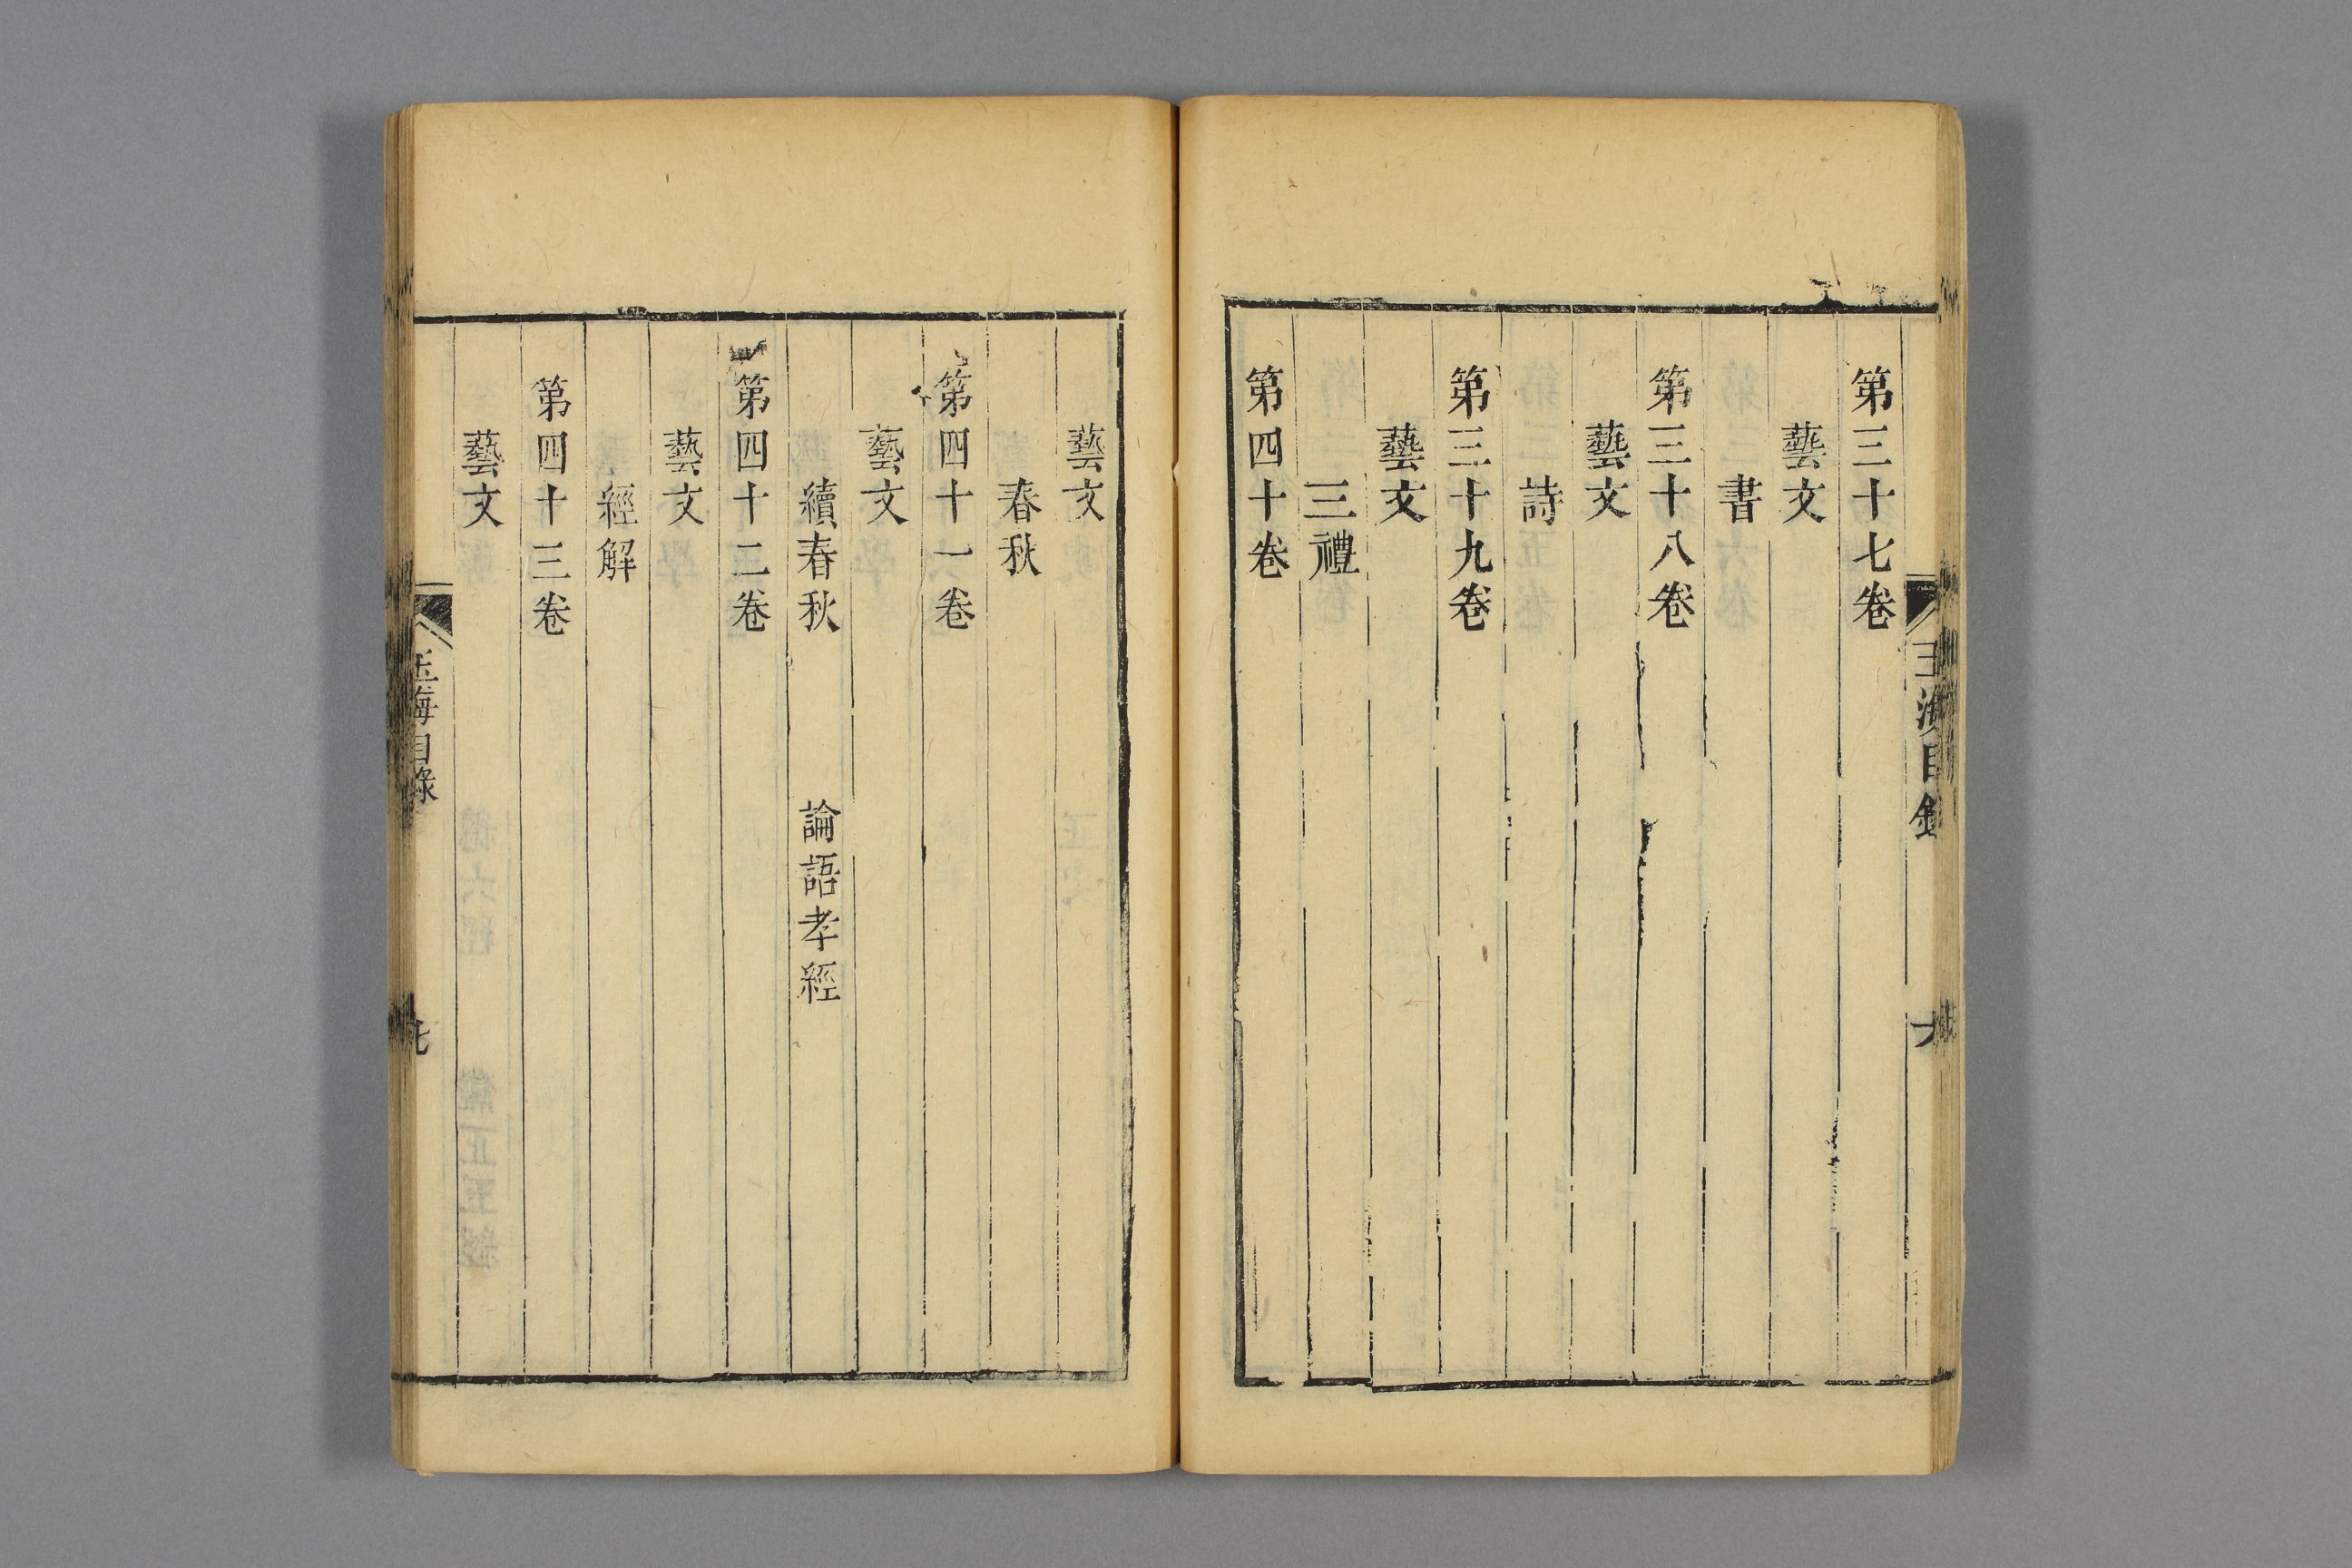 第三十七卷
藝文
書
第三十八卷
藝文
詩
第三十九卷
藝文
三禮
第四十卷
藝文
春秋
第四十一卷
藝文
續春秋 論語孝經
第四十二卷
藝文
經解
第四十三卷
藝文
玉海目錄